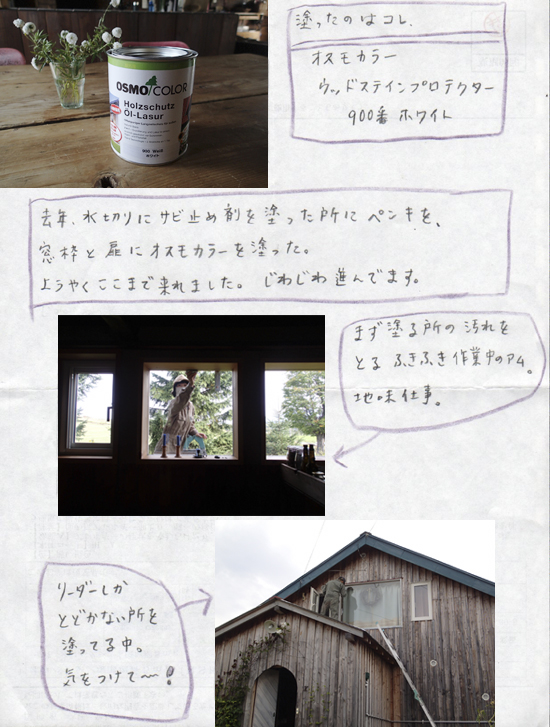 塗ったのはコレ.
オスモカラー
ウッドステインプロテクター
900番 ホワイト
OSMO COLOR
Holzschutz
Öl-Lasur
900 Weiß
ホワイト
去年、水切りにサビ止め剤を塗った所にペンキを、
窓枠と扉にオスモカラーを塗った。
ようやくここまで来れました。じわじわ進んでます。
まず塗る所の汚れを
とる ふきふき作業中のアム。
地味仕事。
リーダーしか
とどかない所を
塗ってる中。
気をつけて〜!